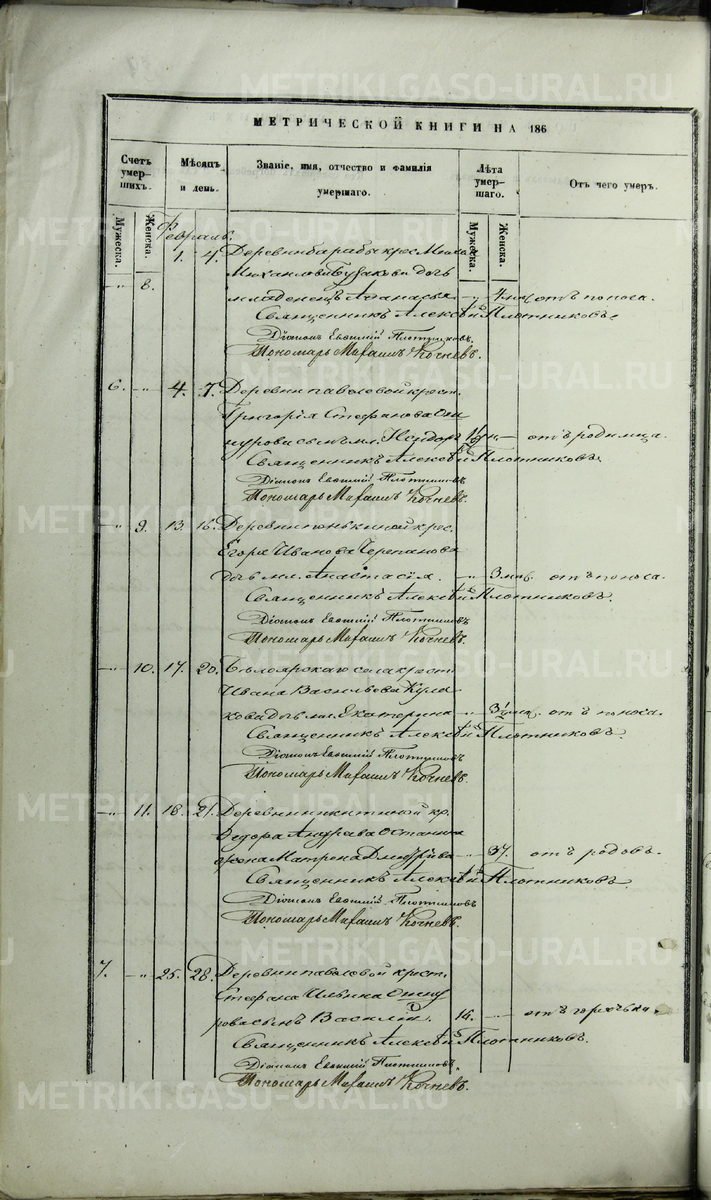 МЕТРИЧЕСКОЙ КНИГИ НА 186
Счетъ умер-шихъ.
Мужеска.
Женска.
Мѣсяцъ и день.
Званіе, имя, отчество и фамилія умершаго.
Лѣта умер-шаго.
Мужеска.
Женска.
Отъ чего умеръ.
Февраль.
1. 4. Деревни барабы крес.
" 8. Михаилова дочь
младенецъ Афанасья " 4 мѣс. отъ поноса.
Священникъ Алексѣй Плотниковъ.
Діаконъ Евѳимій Плотниковъ.
Пономарь Михаилъ Кочневъ.
6. " 4. 7. Деревни паволовой крест.
Григорія Стефанова
сынъ мл. отъ родимца.
Священникъ Алексѣй Плотниковъ.
Діаконъ Евѳимій Плотниковъ
Пономарь Михаилъ Кочневъ.
" 9. 13. 16. Деревни крес.
Егора Иванова Черепанова
дочь мл. Анастасія. " 3 мѣс. отъ поноса.
Священникъ Алексѣй Плотниковъ.
Діаконъ Евѳимій Плотниковъ
Пономарь Михаилъ Кочневъ.
" 10. 17. 20. Бѣлоярскаго села крест.
Ивана Васильева Кула
кова дочь мл. Екатерина " 3½ мѣс. отъ поноса.
Священникъ Алексѣй Плотниковъ.
Діаконъ Евѳимій Плотниковъ
Пономарь Михаилъ Кочневъ.
" 11. 18. 21. Деревни никитиной кр.
Ѳедора Останина
жена Матрена " 37. отъ родовъ.
Священникъ Алексѣй Плотниковъ.
Діаконъ Евѳимій Плотниковъ
Пономарь Михаилъ Кочневъ.
7. " 25. 28. Деревни паволовой крест.
Стефана Ильина
рова сынъ Василій. 14. " отъ горячьки.
Священникъ Алексѣй Плотниковъ.
Діаконъ Евѳимій Плотниковъ.
Пономарь Михаилъ Кочневъ.
METRIKI.GASO-URAL.RU